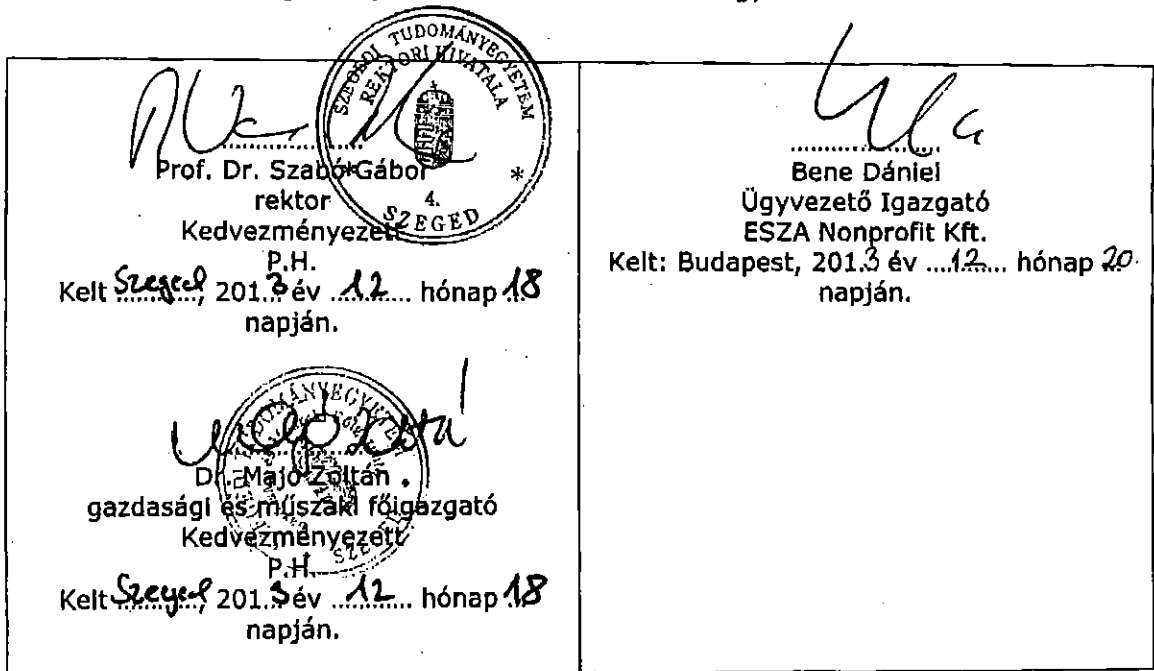 SZEGEDI TUDOMÁNYEGYETEM
REKTORI HIVATALA
4.
SZEGED
Prof. Dr. Szabó Gábor
rektor
Kedvezményezett
P.H.
Kelt Szeged, 2013 év 12 hónap 18
napján.
Dr. Majó Zoltán
gazdasági és műszaki főigazgató
Kedvezményezett
P.H.
Kelt Szeged, 2013 év 12 hónap 18
napján.
Bene Dániel
Ügyvezető Igazgató
ESZA Nonprofit Kft.
Kelt: Budapest, 2013 év 12 hónap 20.
napján.